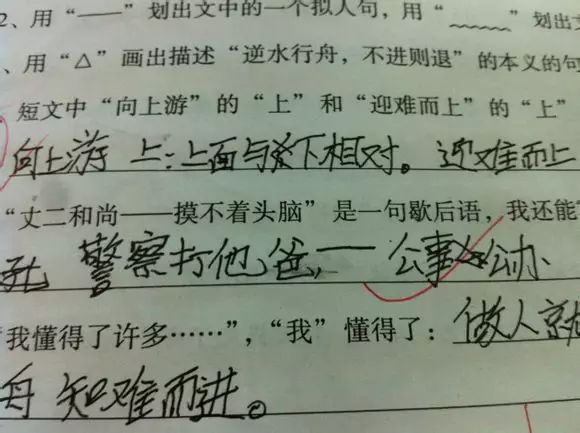 2、用“——”划出文中的一个拟人句，用“﹏﹏﹏”划出文
、用“△”画出描述“逆水行舟，不进则退”的本义的句
短文中“向上游”的“上”和“迎难而上”的“上”
向上游 上：上面与 下相对。 迎难而上
“丈二和尚——摸不着头脑”是一句歇后语，我还能
警察打他爸，—— 公事公办
“我懂得了许多……”，“我”懂得了：做人就
舟 知难而进。